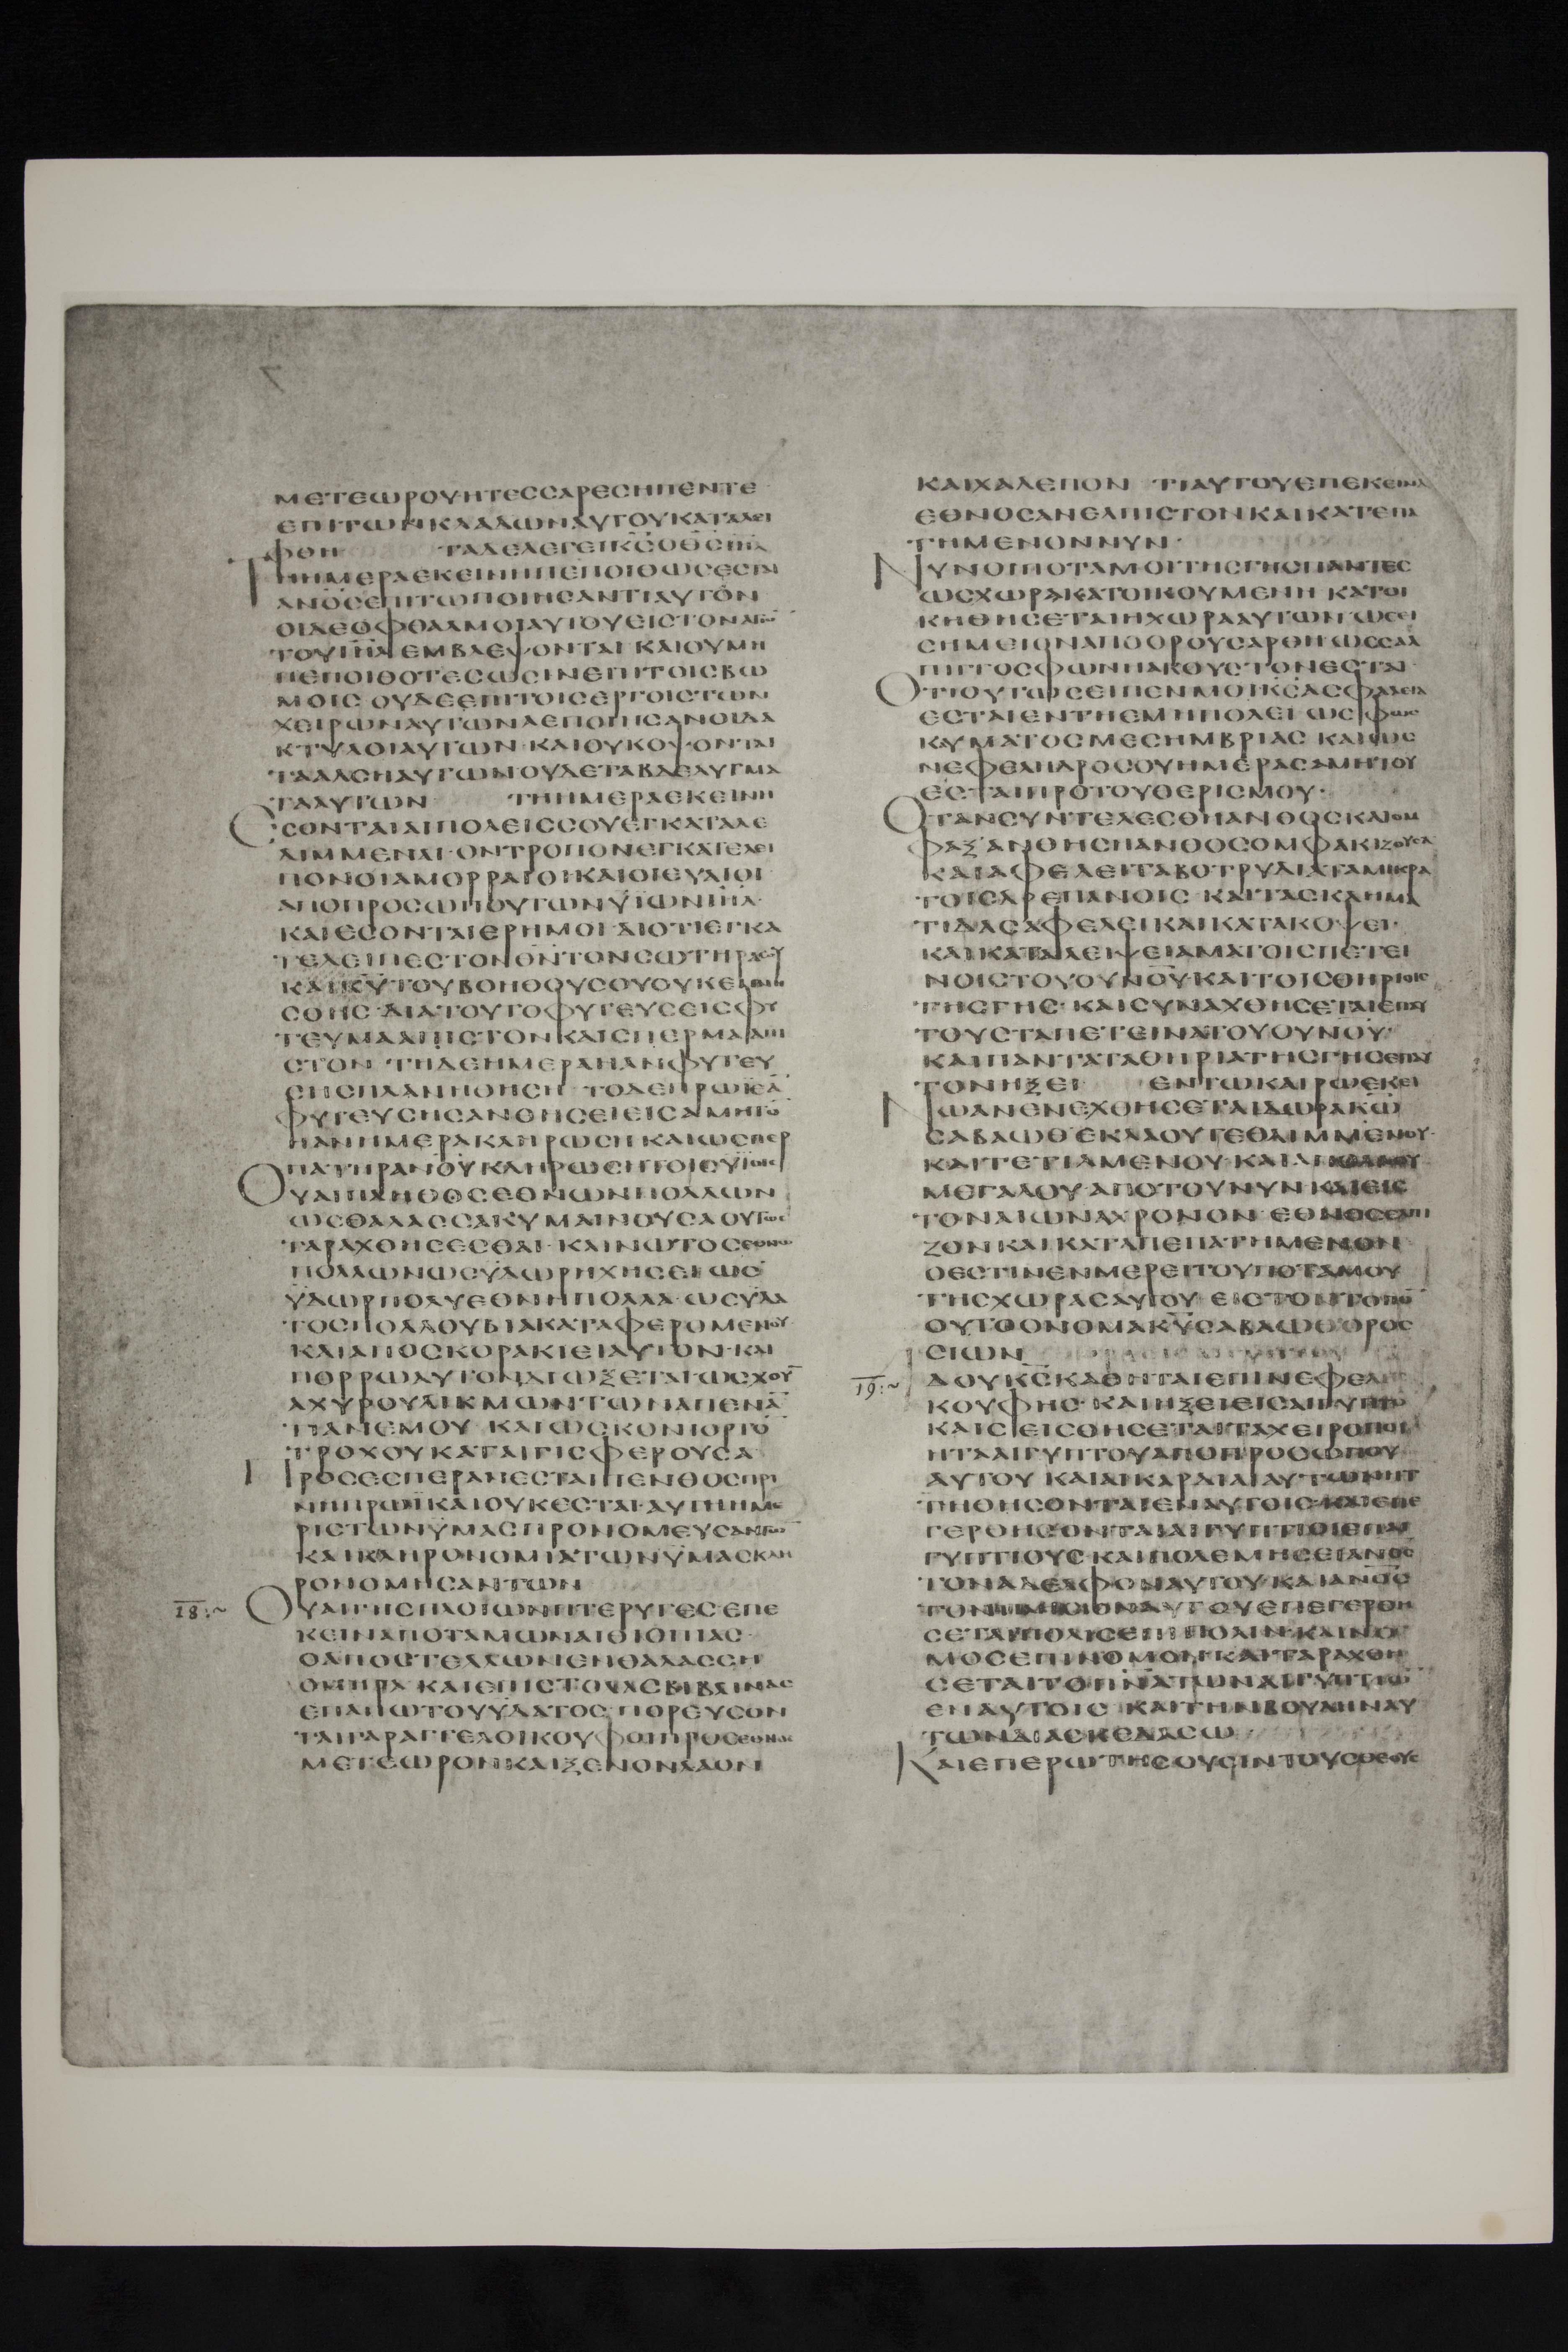 ΜΕΤΕΩΡΟΥΗΤΕΣΣΑΡΕΣΗΠΕΝΤΕ
ΕΠΙΤΩΝΚΛΑΔΩΝΑΥΤΟΥΚΑΤΑΛΕΙ
ΦΘΗ ΤΑΔΕΛΕΓΕΙΚΣΟΘΣΙΗΛ
ΤΗΗΜΕΡΑΕΚΕΙΝΗΠΕΠΟΙΘΩΣΕΣΤΑΙ
ΑΝΟΣΕΠΙΤΩΠΟΙΗΣΑΝΤΙΑΥΤΟΝ
ΟΙΔΕΟΦΘΑΛΜΟΙΑΥΤΟΥΕΙΣΤΟΝΑΓΙΟ
ΤΟΥΙΗΛΕΜΒΛΕΨΟΝΤΑΙ ΚΑΙΟΥΜΗ
ΠΕΠΟΙΘΟΤΕΣΩΣΙΝΕΠΙΤΟΙΣΒΩ
ΜΟΙΣ ΟΥΔΕΕΠΙΤΟΙΣΕΡΓΟΙΣΤΩΝ
ΧΕΙΡΩΝΑΥΤΩΝΑΕΠΟΙΗΣΑΝΟΙΔΑ
ΚΤΥΛΟΙΑΥΤΩΝ·ΚΑΙΟΥΚΟΨΟΝΤΑΙ
ΤΑΔΑΣΗΑΥΤΩΝΟΥΔΕΤΑΒΔΕΛΥΓΜΑ
ΤΑΑΥΤΩΝ ΤΗΗΜΕΡΑΕΚΕΙΝΗ
ΕΣΟΝΤΑΙΑΙΠΟΛΕΙΣΣΟΥΕΓΚΑΤΑΛΕ
ΛΙΜΜΕΝΑΙ·ΟΝΤΡΟΠΟΝΕΓΚΑΤΕΛΕΙ
ΠΟΝΟΙΑΜΟΡΡΑΙΟΙΚΑΙΟΙΕΥΑΙΟΙ
ΑΠΟΠΡΟΣΩΠΟΥΤΩΝΫΙΩΝΙΗΛ·
ΚΑΙΕΣΟΝΤΑΙΕΡΗΜΟΙ·ΔΙΟΤΙΕΓΚΑ
ΤΕΛΕΙΠΕΣΤΟΝΘΝΤΟΝΣΩΤΗΡΑΣΟΥ
ΚΑΙΚΥΤΟΥΒΟΗΘΟΥΣΟΥΟΥΚΕΜΝΗ
ΣΘΗΣ·ΔΙΑΤΟΥΤΟΦΥΤΕΥΣΕΙΣΦΥ
ΤΕΥΜΑΑΠΙΣΤΟΝΚΑΙΣΠΕΡΜΑΑΠΙ
ΣΤΟΝ ΤΗΔΕΗΜΕΡΑΗΑΝΦΥΤΕΥ
ΣΗΣΠΛΑΝΗΘΗΣΗ ΤΟΔΕΠΡΩΙΕΑ
ΦΥΤΕΥΣΗΣΑΝΘΗΣΕΙΕΙΣΑΜΗΤΟ
ΗΑΝΗΜΕΡΑΚΛΗΡΩΣΗΚΑΙΩΣΠΕΡ
ΠΑΤΗΡΑΝΟΥΚΛΗΡΩΣΗΤΟΙΣΥΙΟΙΣ
ΟΥΑΙΠΛΗΘΟΣΕΘΝΩΝΠΟΛΛΩΝ
ΩΣΘΑΛΑΣΣΑΚΥΜΑΙΝΟΥΣΑΟΥΤΩΣ
ΤΑΡΑΧΘΗΣΕΣΘΑΙ·ΚΑΙΝΩΤΟΣΕΘΝΩ
ΠΟΛΛΩΝΩΣΥΔΩΡΗΧΗΣΕΙ ΩΣ
ΫΔΩΡΠΟΛΥΕΘΝΗΠΟΛΛΑ·ΩΣΥΔΑ
ΤΟΣΠΟΛΛΟΥΒΙΑΚΑΤΑΦΕΡΟΜΕΝΟΥ·
ΚΑΙΑΠΟΣΚΟΡΑΚΙΕΙΑΥΤΟΝ·ΚΑΙ
ΠΟΡΡΩΑΥΤΟΝΔΙΩΞΕΤΑΙ·ΩΣΧΟΥ
ΑΧΥΡΟΥΛΙΚΜΩΝΤΩΝΑΠΕΝΑ
ΤΙΑΝΕΜΟΥ ΚΑΙΩΣΚΟΝΙΟΡΤΟ
ΤΡΟΧΟΥΚΑΤΑΙΓΙΣΦΕΡΟΥΣΑ
ΠΡΟΣΕΣΠΕΡΑΝΕΣΤΑΙΠΕΝΘΟΣΠΡΙ
ΝΗΠΡΩΙΚΑΙΟΥΚΕΣΤΑΙ·ΑΥΤΗΗΜΕ
ΡΙΣΤΩΝΫΜΑΣΠΡΟΝΟΜΕΥΣΑΝΤΩ
ΚΑΙΚΛΗΡΟΝΟΜΙΑΤΩΝΫΜΑΣΚΛΗ
ΡΟΝΟΜΗΣΑΝΤΩΝ
18:~ ΟΥΑΙΓΗΣΠΛΟΙΩΝΠΤΕΡΥΓΕΣ·ΕΠΕ
ΚΕΙΝΑΠΟΤΑΜΩΝΑΙΘΙΟΠΙΑΣ·
ΟΑΠΟΣΤΕΛΛΩΝΕΝΘΑΛΑΣΣΗ
ΟΜΗΡΑ ΚΑΙΕΠΙΣΤΟΛΑΣΒΙΒΛΙΝΑΣ
ΕΠΑΝΩΤΟΥΥΔΑΤΟΣ·ΠΟΡΕΥΣΟΝ
ΤΑΙΓΑΡΑΓΓΕΛΟΙΚΟΥΦΟΙΠΡΟΣΕΘΝΟΣ
ΜΕΤΕΩΡΟΝΚΑΙΞΕΝΟΝΛΑΟΝ
ΚΑΙΧΑΛΕΠΟΝ ΤΙΑΥΤΟΥΕΠΕΚΕΙΝΑ
ΕΘΝΟΣΑΝΕΛΠΙΣΤΟΝΚΑΙΚΑΤΕΠΑ
ΤΗΜΕΝΟΝΝΥΝ·
ΝΥΝΟΙΠΟΤΑΜΟΙΤΗΣΓΗΣΠΑΝΤΕΣ
ΩΣΧΩΡΑΚΑΤΟΙΚΟΥΜΕΝΗ ΚΑΤΟΙ
ΚΗΘΗΣΕΤΑΙΗΧΩΡΑΑΥΤΩΝ ΩΣΕΙ
ΣΗΜΕΙΟΝΑΠΟΟΡΟΥΣΑΡΘΗ ΩΣΣΑΛ
ΠΙΓΓΟΣΦΩΝΗΑΚΟΥΣΤΟΝΕΣΤΑΙ·
ΟΤΙΟΥΤΩΣΕΙΠΕΝΜΟΙΚΣΑΣΦΑΛΕΙΑ
ΕΣΤΑΙΕΝΤΗΕΜΗΠΟΛΕΙ ΩΣΦΩΣ
ΚΑΥΜΑΤΟΣΜΕΣΗΜΒΡΙΑΣ ΚΑΙΩΣ
ΝΕΦΕΛΗΔΡΟΣΟΥΗΜΕΡΑΣΑΜΗΤΟΥ
ΕΣΤΑΙΠΡΟΤΟΥΘΕΡΙΣΜΟΥ·
ΟΤΑΝΣΥΝΤΕΛΕΣΘΗΑΝΘΟΣΚΑΙΟΜ
ΦΑΞΑΝΘΗΣΠΑΝΘΟΣΟΜΦΑΚΙΖΟΥΣΑ
ΚΑΙΑΦΕΛΕΙΤΑΒΟΤΡΥΔΙΑΤΑΜΙΚΡΑ
ΤΟΙΣΔΡΕΠΑΝΟΙΣ ΚΑΙΤΑΣΚΛΗΜΑ
ΤΙΔΑΣΑΦΕΛΕΙΚΑΙΚΑΤΑΚΟΨΕΙ·
ΚΑΙΚΑΤΑΛΕΙΨΕΙΑΜΑΤΟΙΣΠΕΤΕΙ
ΝΟΙΣΤΟΥΟΥΝΟΥΚΑΙΤΟΙΣΘΗΡΙΟΙΣ
ΤΗΣΓΗΣ·ΚΑΙΣΥΝΑΧΘΗΣΕΤΑΙΕΠΑΥ
ΤΟΥΣΤΑΠΕΤΕΙΝΑΤΟΥΟΥΝΟΥ·
ΚΑΙΠΑΝΤΑΤΑΘΗΡΙΑΤΗΣΓΗΣΕΠΑΥ
ΤΟΝΗΞΕΙ ΕΝΤΩΚΑΙΡΩΕΚΕΙ
ΝΩΑΝΕΝΕΧΘΗΣΕΤΑΙΔΩΡΑΚΩ
ΣΑΒΑΩΘΕΚΛΑΟΥΤΕΘΛΙΜΜΕΝΟΥ·
ΚΑΙΤΕΤΙΛΜΕΝΟΥ·ΚΑΙΑΠΟΛΑΟΥ
ΜΕΓΑΛΟΥ·ΑΠΟΤΟΥΝΥΝΚΑΙΕΙΣ
ΤΟΝΑΙΩΝΑΧΡΟΝΟΝ·ΕΘΝΟΣΕΛΠΙ
ΖΟΝΚΑΙΚΑΤΑΠΕΠΑΤΗΜΕΝΟΝ
ΟΕΣΤΙΝΕΝΜΕΡΕΙΤΟΥΠΟΤΑΜΟΥ
ΤΗΣΧΩΡΑΣΑΥΤΟΥ ΕΙΣΤΟΝΤΟΠΟ
ΟΥΤΟΟΝΟΜΑΚΥΣΑΒΑΩΘΟΡΟΣ
ΣΙΩΝ
19:~ ΙΔΟΥΚΣΚΑΘΗΤΑΙΕΠΙΝΕΦΕΛΗΣ
ΚΟΥΦΗΣ·ΚΑΙΗΞΕΙΕΙΣΑΙΓΥΠΤΟ
ΚΑΙΣΕΙΣΘΗΣΕΤΑΙΤΑΧΕΙΡΟΠΟΙ
ΗΤΑΑΙΓΥΠΤΟΥΑΠΟΠΡΟΣΩΠΟΥ
ΑΥΤΟΥ ΚΑΙΑΙΚΑΡΔΙΑΙΑΥΤΩΝΗΤ
ΤΗΘΗΣΟΝΤΑΙΕΝΑΥΤΟΙΣ·ΚΑΙΕΠΕ
ΓΕΡΘΗΣΟΝΤΑΙΑΙΓΥΠΤΙΟΙΕΠΑΙ
ΓΥΠΤΙΟΥΣ·ΚΑΙΠΟΛΕΜΗΣΕΙΑΝΟΣ
ΤΟΝΑΔΕΛΦΟΝΑΥΤΟΥ·ΚΑΙΑΝΟΣ
ΤΟΝΠΛΗΣΙΟΝΑΥΤΟΥΕΠΕΓΕΡΘΗ
ΣΕΤΑΙΠΟΛΙΣΕΠΙΠΟΛΙΝ·ΚΑΙΝΟ
ΜΟΣΕΠΙΝΟΜΟΝ·ΚΑΙΤΑΡΑΧΘΗ
ΣΕΤΑΙΤΟΠΝΑΤΩΝΑΙΓΥΠΤΙΩ
ΕΝΑΥΤΟΙΣ ΚΑΙΤΗΝΒΟΥΛΗΝΑΥ
ΤΩΝΔΙΑΣΚΕΔΑΣΩ
ΚΑΙΕΠΕΡΩΤΗΣΟΥΣΙΝΤΟΥΣΘΕΟΥΣ